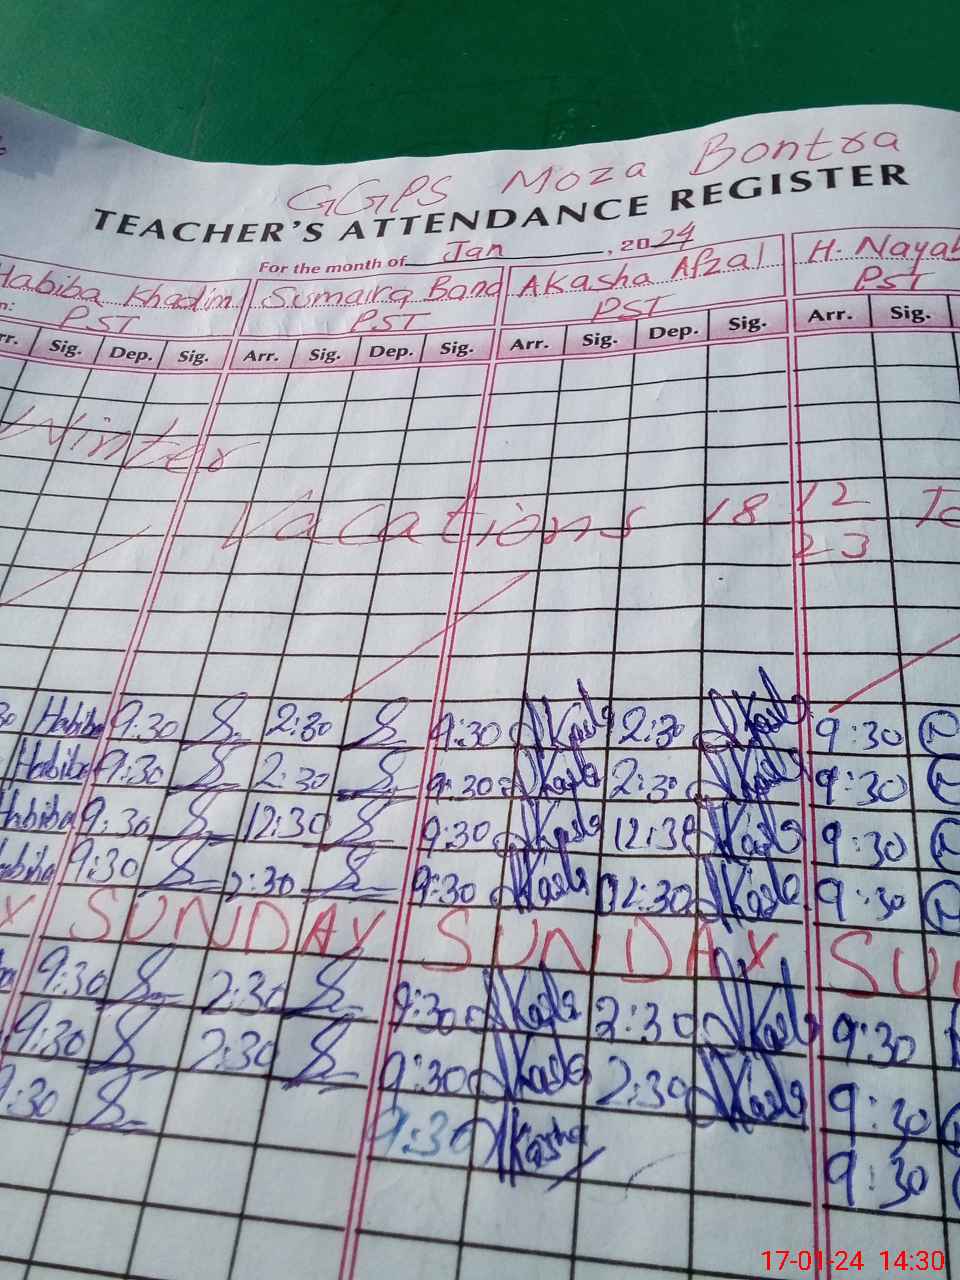 GGPS Moza Bontra
TEACHER'S ATTENDANCE REGISTER
For the month of Jan, 2024
Habiba Khadim Sumaira Band Akasha Afzal H. Nayab
PST PST PST PST
Sig. Dep. Sig. Arr. Sig. Dep. Sig. Arr. Sig. Dep. Sig. Arr. Sig.
Winter
Vacations 18 12 To
23
Habiba 9:30 2:30 9:30 AKasha 2:30 AKasha 9:30
Habiba 9:30 2:30 9:30 AKasha 2:30 AKasha 9:30
Habiba 9:30 12:30 9:30 AKasha 12:30 AKasha 9:30
Habiba 9:30 2:30 9:30 AKasha 12:30 AKasha 9:30
Y SUNDAY SUNDAY SU
9:30 2:30 9:30 AKasha 2:30 AKasha 9:30
9:30 2:30 9:30 AKasha 2:30 AKasha 9:30
9:30 9:30 AKasha 9:30
17-01-24 14:30